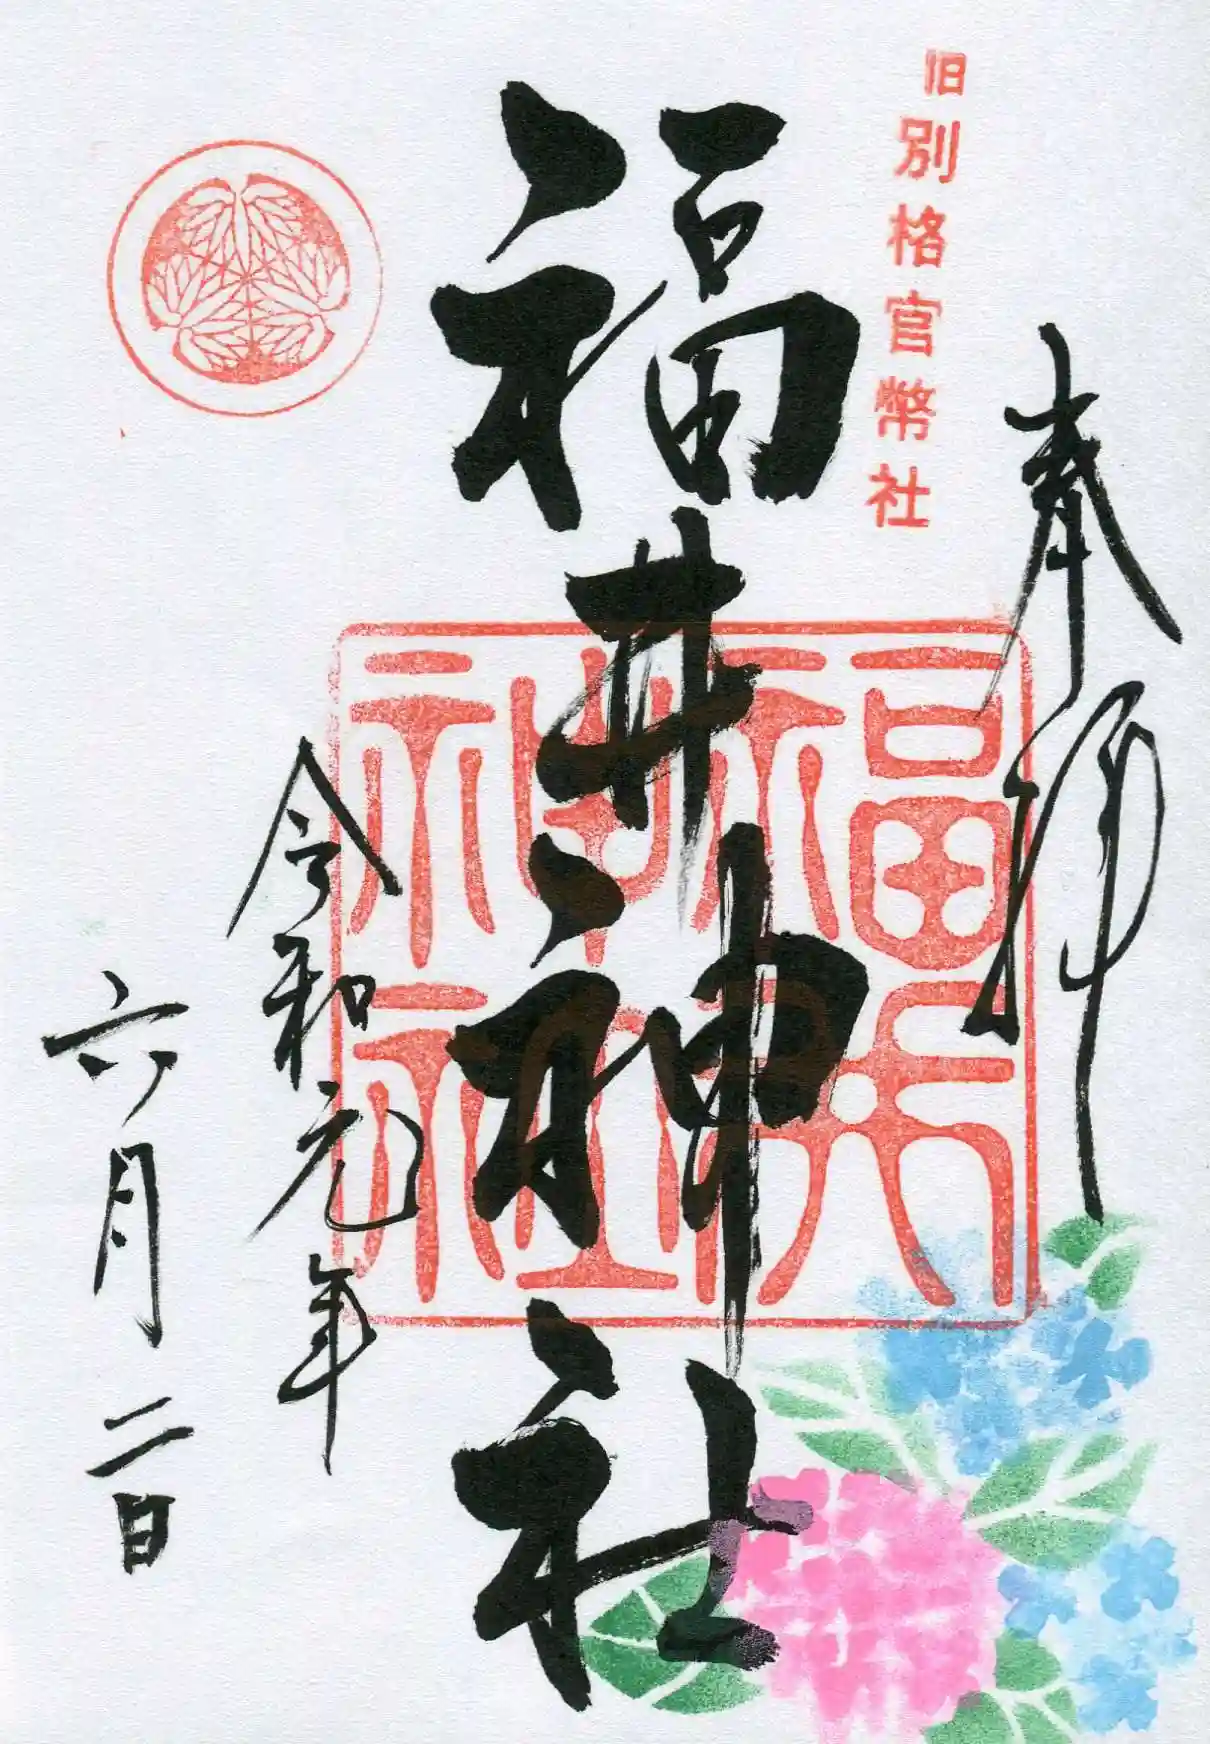 奉拝
旧別格官幣社
福井神社
福井神社
令和元年
六月二日